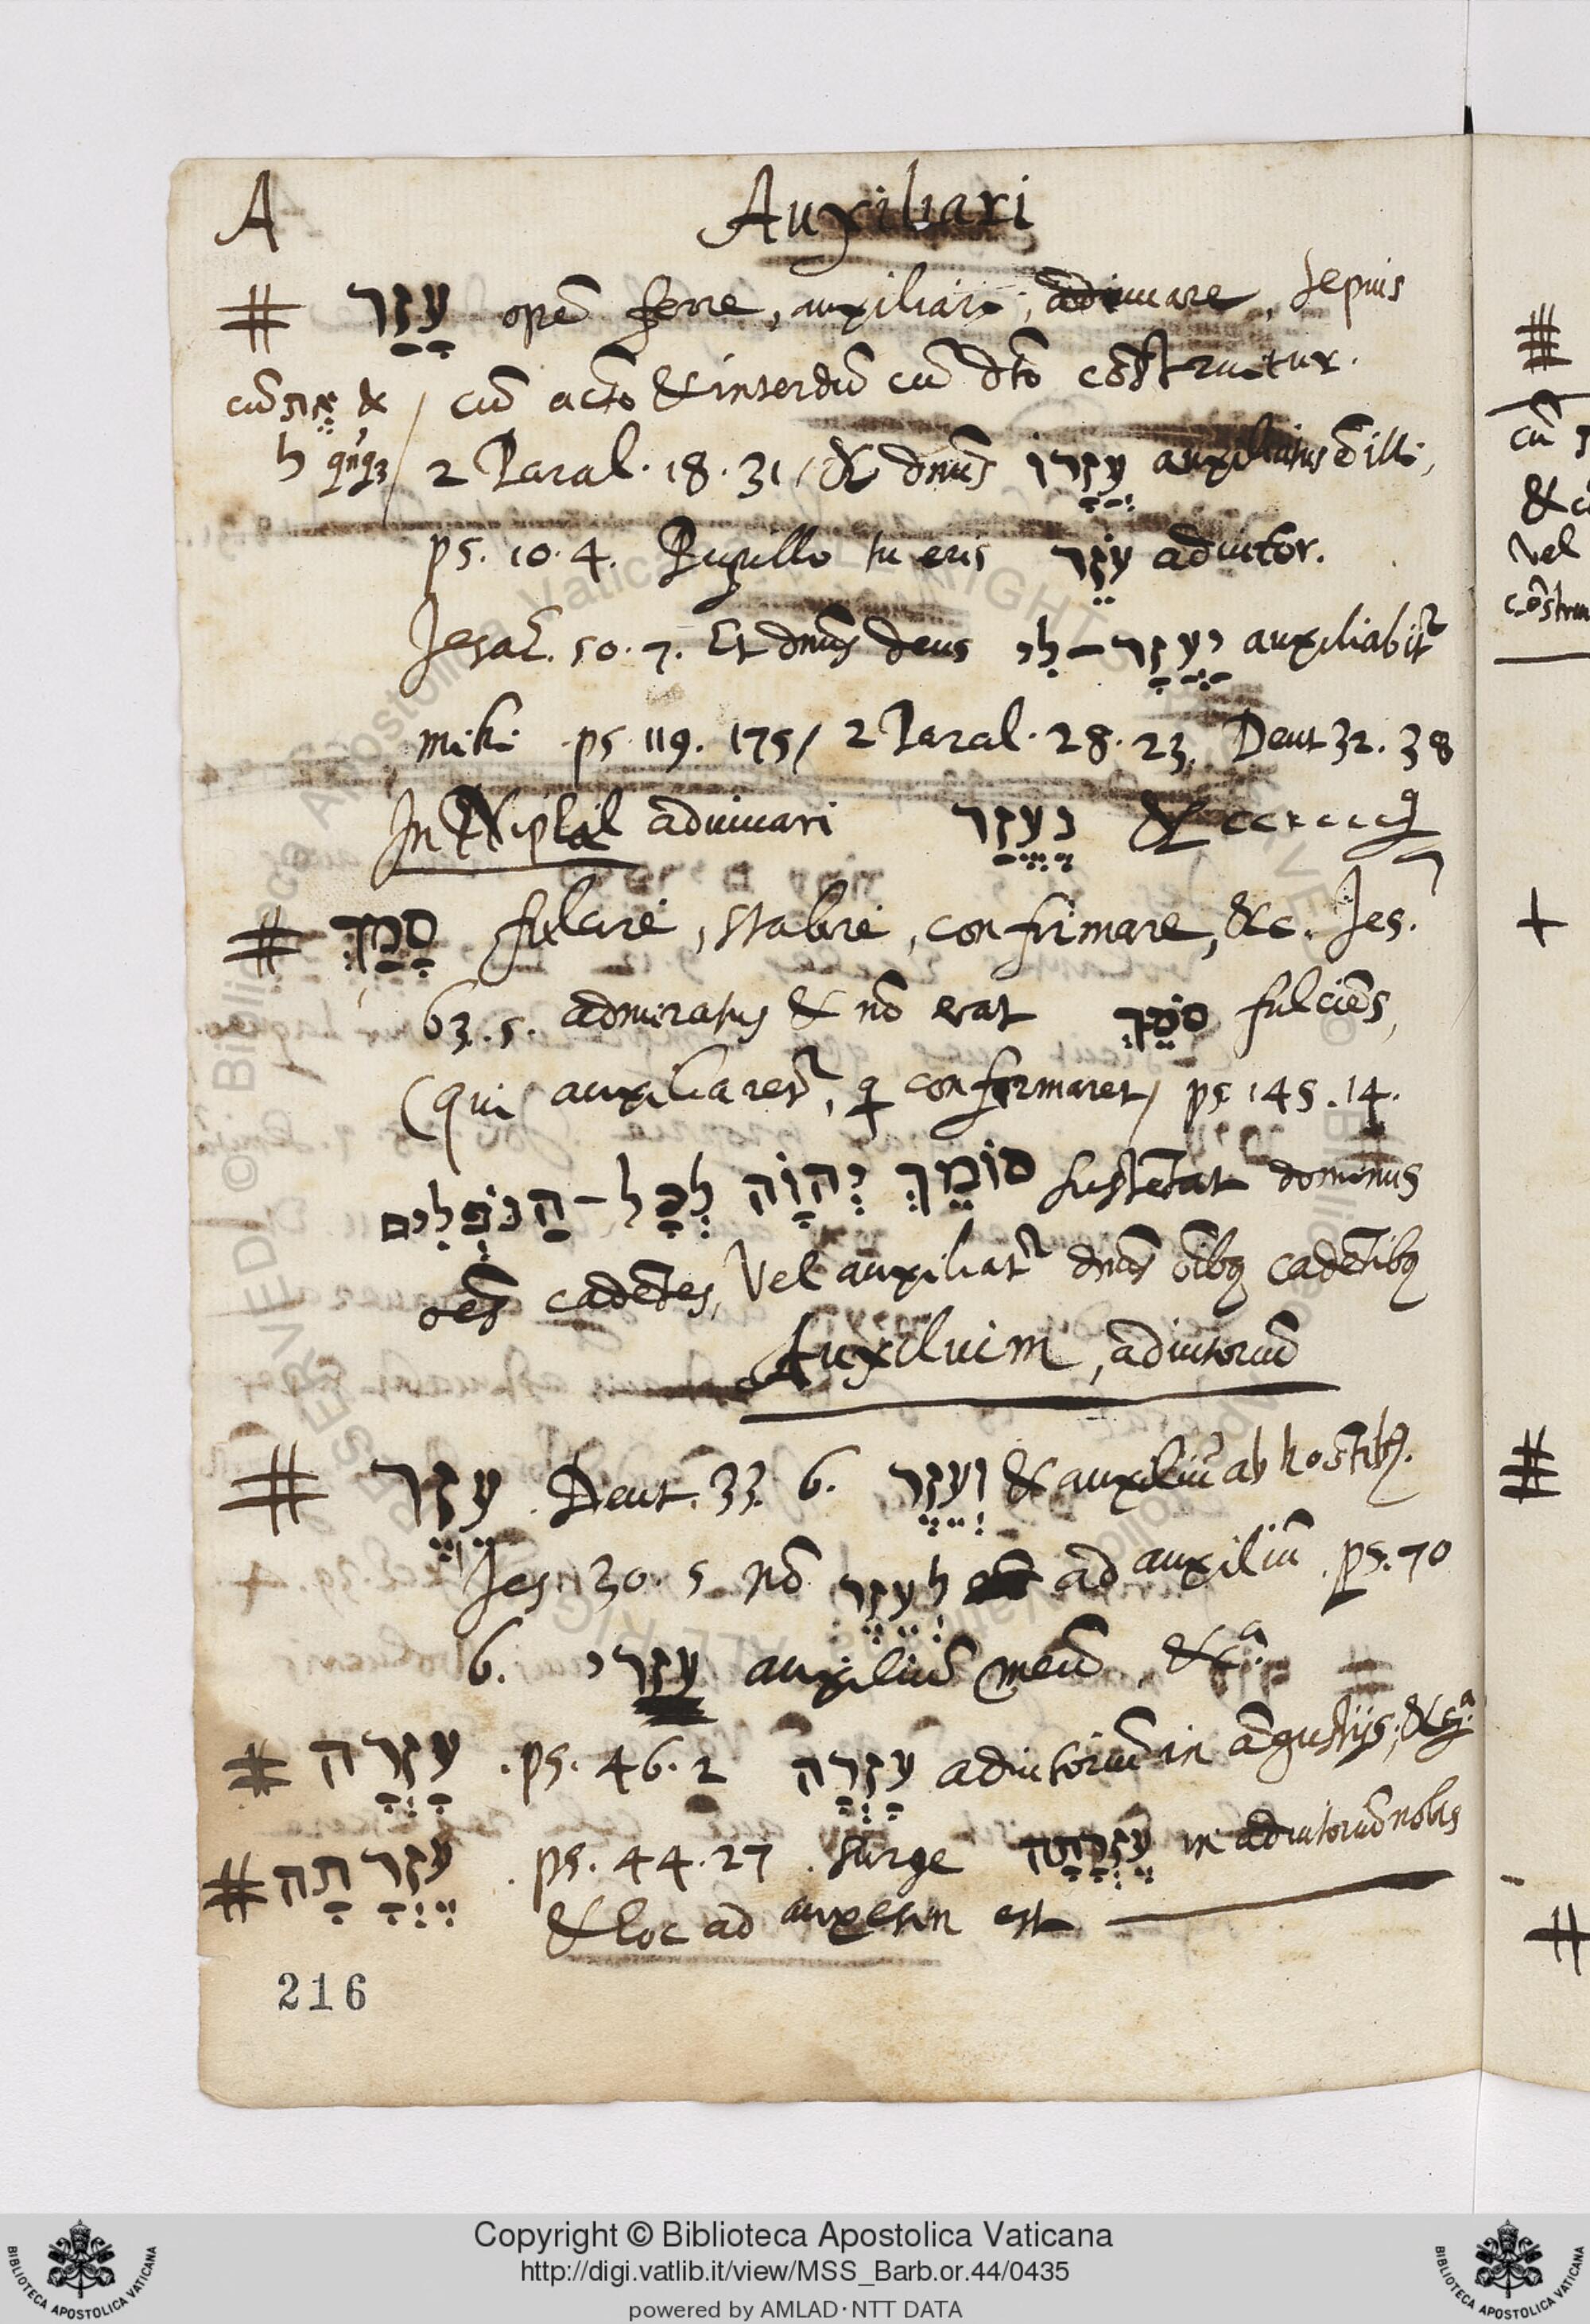 A Auxiliari
# עָזַר opē ferre, auxiliari, adiuuare, sepius
cū אֵת & / cū actō & interdū cū dtō cōstruitur.
ל qn̄q3 / 2 Paral. 18. 31 / & dnūs עֲזָרוֹ auxiliatus ē illi,
ps. 10. 4. Pupillo tu eris עֹזֵר adiutor.
Jesaē. 50. 7. Et dnūs deus יַעֲזָר-לִי auxiliabit
mihi ps. 119. 175 / 2 Paral. 28. 23, Deut 32. 38
In Niphil adiuuari נֶעֱזַר &
# סָמַךְ fulcire, stabire, confirmare, &c. Jes.
63. 5. admiratus & nō erat סֹמֵךְ fulciēs,
(qui auxiliaret, confirmaret) ps 145. 14.
סוֹמֵךְ יְהוָֹה לְכָל-הַנּוֹפְלִים sustētat dominus
oēs cadētes, Vel auxiliat dnūs oībq cadētibq
Auxiluim, adiutoriū
# עֵזֶר . Deut. 33. 6. וְעֵזֶר & auxiliū ab hostibq.
Jes. 30. 5 nō לְעֵזֶר ad auxiliū . ps. 70
6. עזרי auxiliū meū , &cᵃ.
# עָזְרָה . ps. 46. 2 עָזְרָה adiutoriū in āgustijs, &cᵃ.
# עֶזְרָתָה . ps. 44. 27 . Surge עֶזְרָתָה in adiutoriū nobis
& hoc ad auxesin est
216
#
cū
&
Vel
cōstru
+
#
#
Copyright © Biblioteca Apostolica Vaticana
http://digi.vatlib.it/view/MSS_Barb.or.44/0435
powered by AMLAD·NTT DATA
BIBLIOTECA APOSTOLICA VATICANA
BIBLIOTECA APOSTOLICA VATICANA